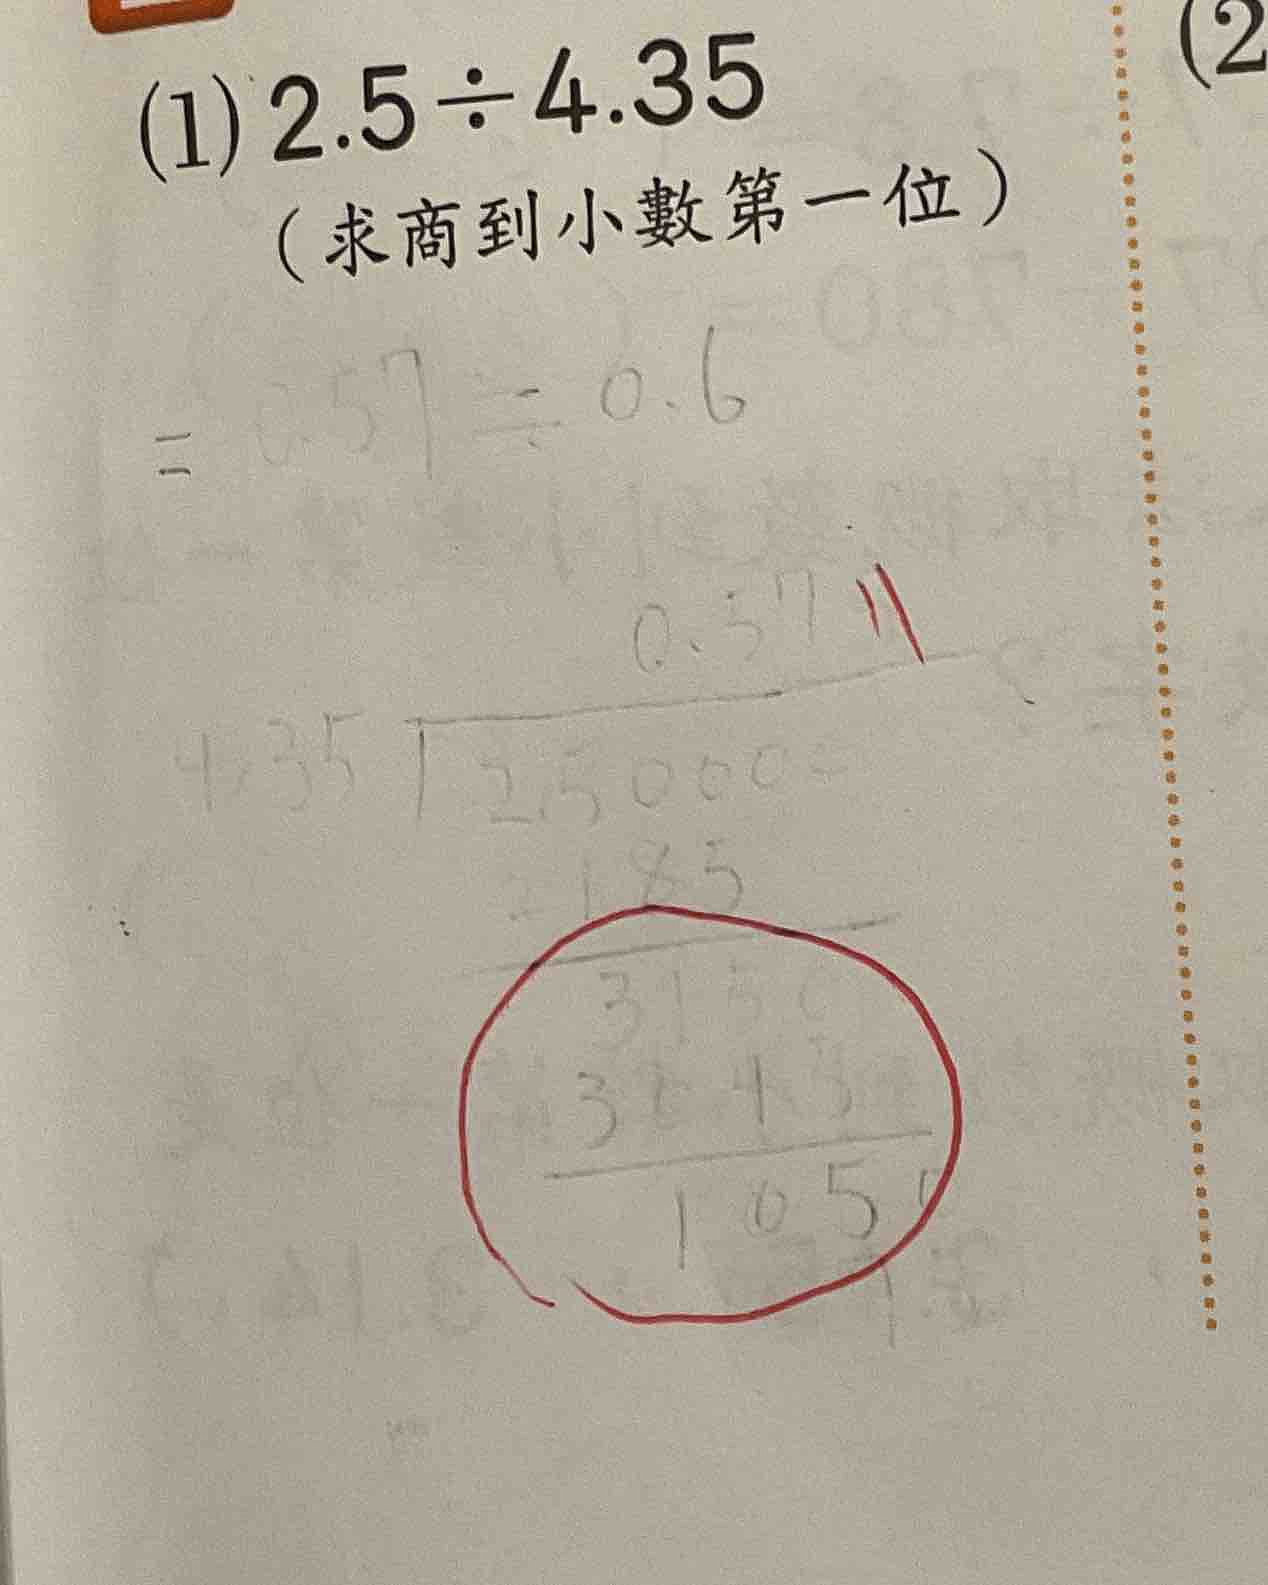 (1) 2.5÷4.35
(2
（求商到小數第一位）
= 0.57 ÷ 0.6
0.57
4.35 2.5000
2185
3150
3045
105